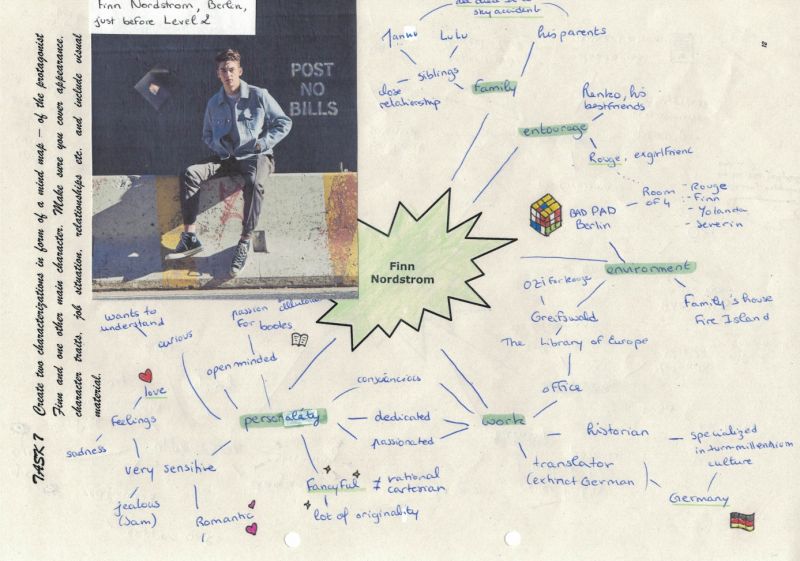 Finn Nordstrom, Berlin,
just before Level 2
POST
NO
BILLS
TASK 7 Create two characterizations in form of a mind map – of the protagonist
Finn and one other main character. Make sure you cover appearance,
character traits, job situation, relationships etc. and include visual
material.
sky accident
Lulu
his parents
siblings
close
relationship
Family
Renko, his
bestfriends
entourage
Rouge, exgirlfriend
BAD PAD
Berlin
Room
of 4
- Rouge
- Finn
- Yolanda
- Severin
Finn
Nordstrom
environment
Family's house
Fire Island
Greifswald
The Library of Europe
office
wants to
understand
curious
passion
For books
open minded
love
Feelings
sadness
very sensitive
jealous
(Sam)
Romantic
personality
consciencious
dedicated
passionated
work
Fancyful ≠ rational
cartesian
lot of originality
historian
specialized
in turn-millennium
culture
translator
(extinct German
Germany